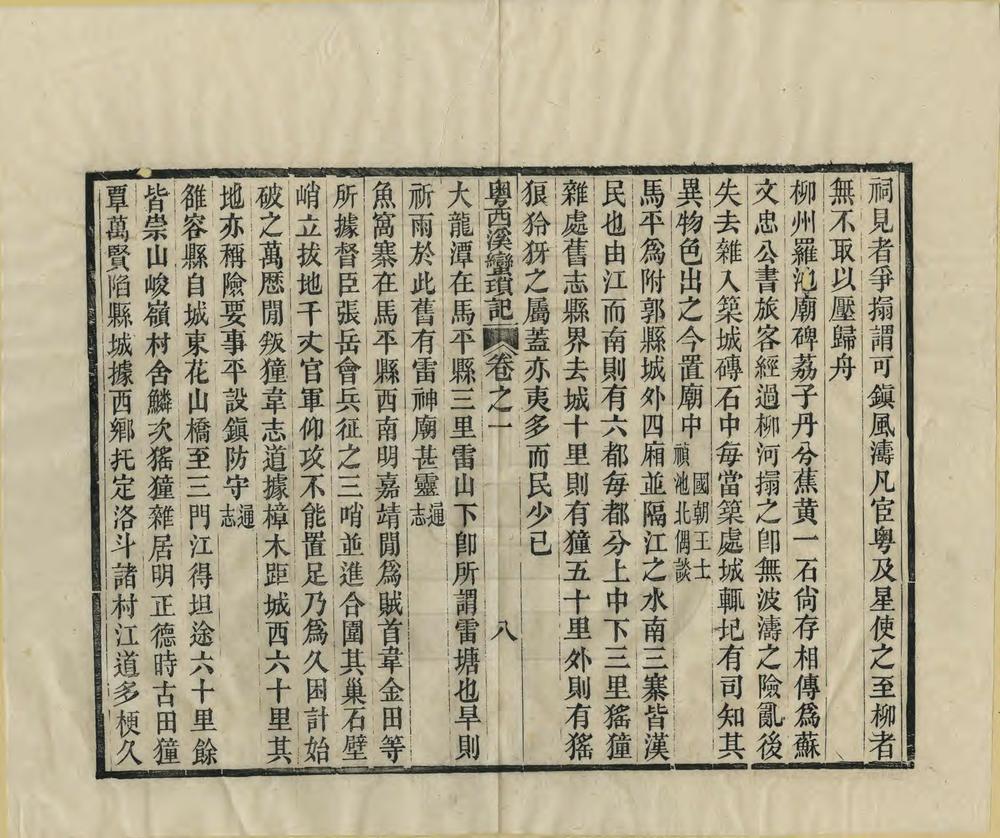 祠見者爭搨謂可鎮風濤凡宦粤及星使之至柳者
無不取以壓歸舟
柳州羅池廟碑荔子丹分蕉黃一石尙存相傳爲蘇
文忠公書旅客經過柳河搨之卽無波濤之險亂後
失去雜入築城磚石中每當築處城輒圮有司知其
異物色出之今置廟中國朝王士禎池北偶談
馬平爲附郭縣城外四廂並隔江之水南三寨皆漢
民也由江而南則有六都每都分上中下三里猺獞
雜處舊志縣界去城十里則有獞五十里外則有猺
狼狑犽之屬蓋亦夷多而民少已
粤西溪蠻瑣記 卷之一 八
大龍潭在馬平縣三里雷山下卽所謂雷塘也旱則
祈雨於此舊有雷神廟甚靈通志
魚窩寨在馬平縣西南明嘉靖閒爲賊首韋金田等
所據督臣張岳會兵征之三哨並進合圍其巢石壁
峭立拔地千丈官軍仰攻不能置足乃爲久困計始
破之萬厯閒叛獞韋志道據樟木距城西六十里其
地亦稱險要事平設鎮防守通志
雒容縣自城東花山橋至三門江得坦途六十里餘
皆崇山峻嶺村舍鱗次猺獞雜居明正德時古田獞
覃萬賢陷縣城據西鄕托定洛斗諸村江道多梗久